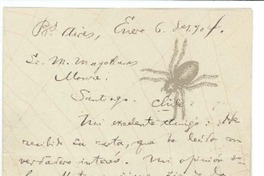 Bs Aires, Enero 6. de 904.
Sr. M. Magallanes
Moure.
Santiago. Chile
Mi excelente amigo: He
recibido su carta, que he leido con
verdadero interés. Mi opinión